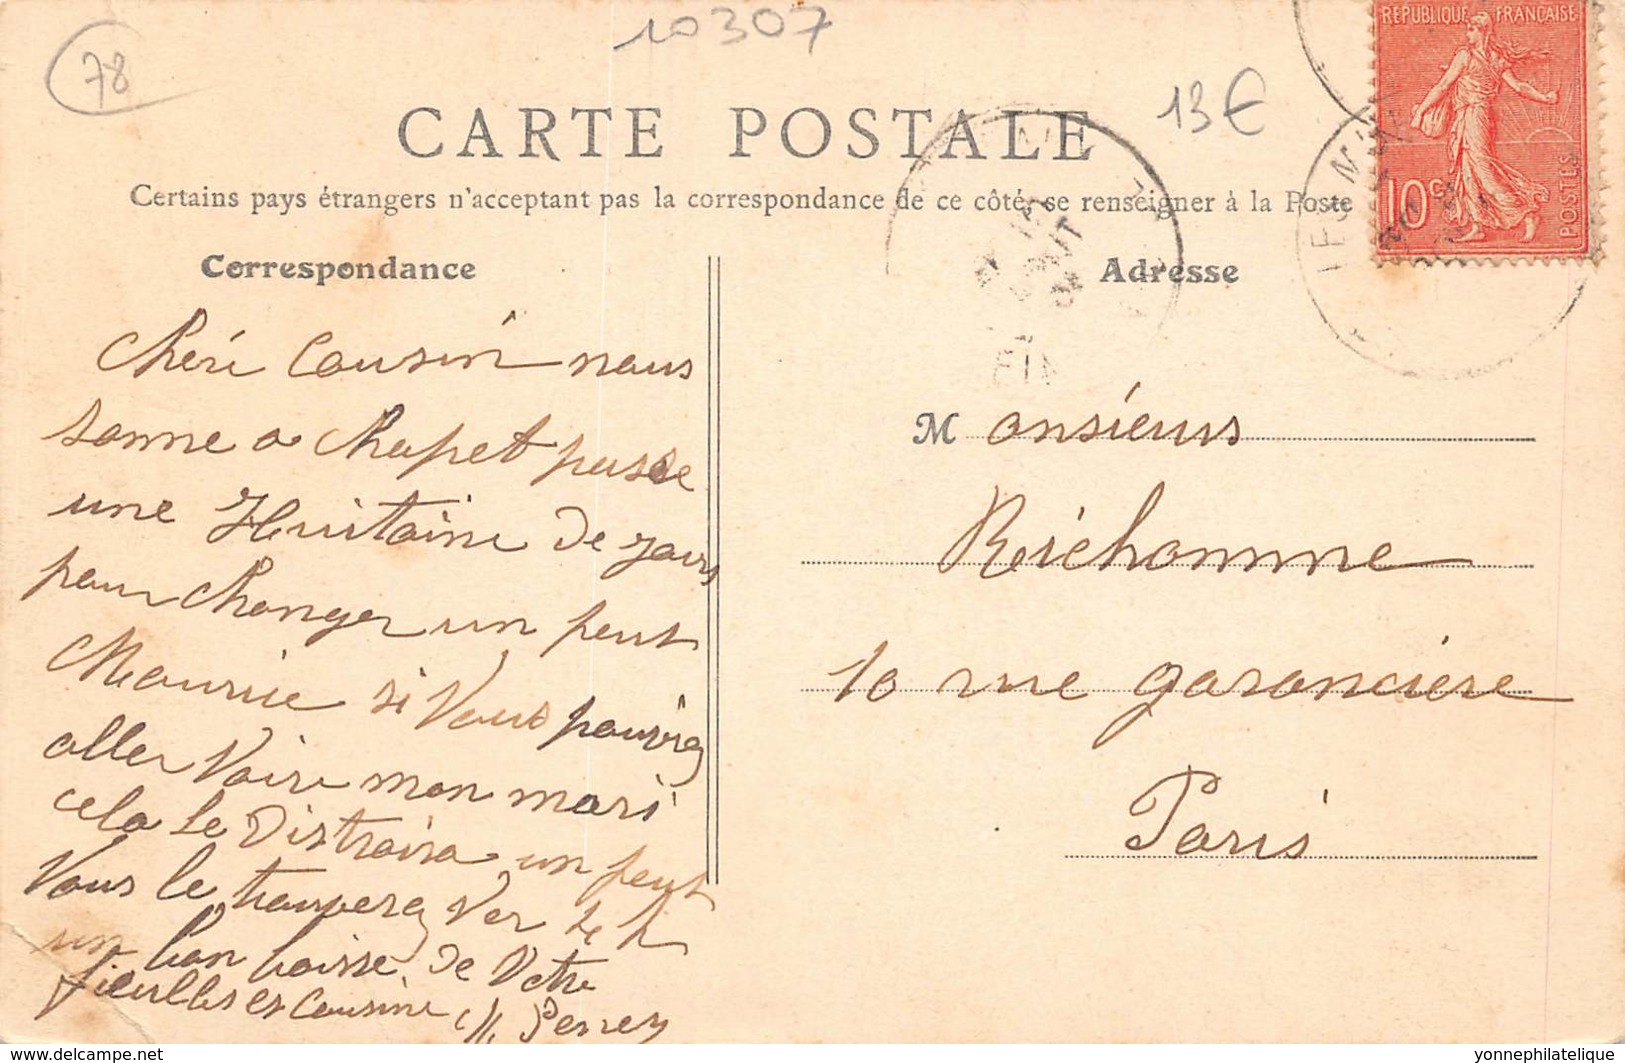 10307
78
13€
RÉPUBLIQUE FRANÇAISE
10 c
POSTES
CARTE POSTALE
Certains pays étrangers n'acceptent pas la correspondance de ce côté, se renseigner à la Poste
Correspondance
Chéri Cousin nous
somme a Chapet passe
une Huitaine de jours
pour changer un peut
Maurice si Vous pouviez
aller Voire mon mari
cela le Distraira un peut
Vous le trouverez Ver
un bon baisse de Votre
Cousine M. Perrey
Adresse
Monsieurs
Reichomme
10 rue garancière
Paris
www.delcampe.net
yonnephilatelique